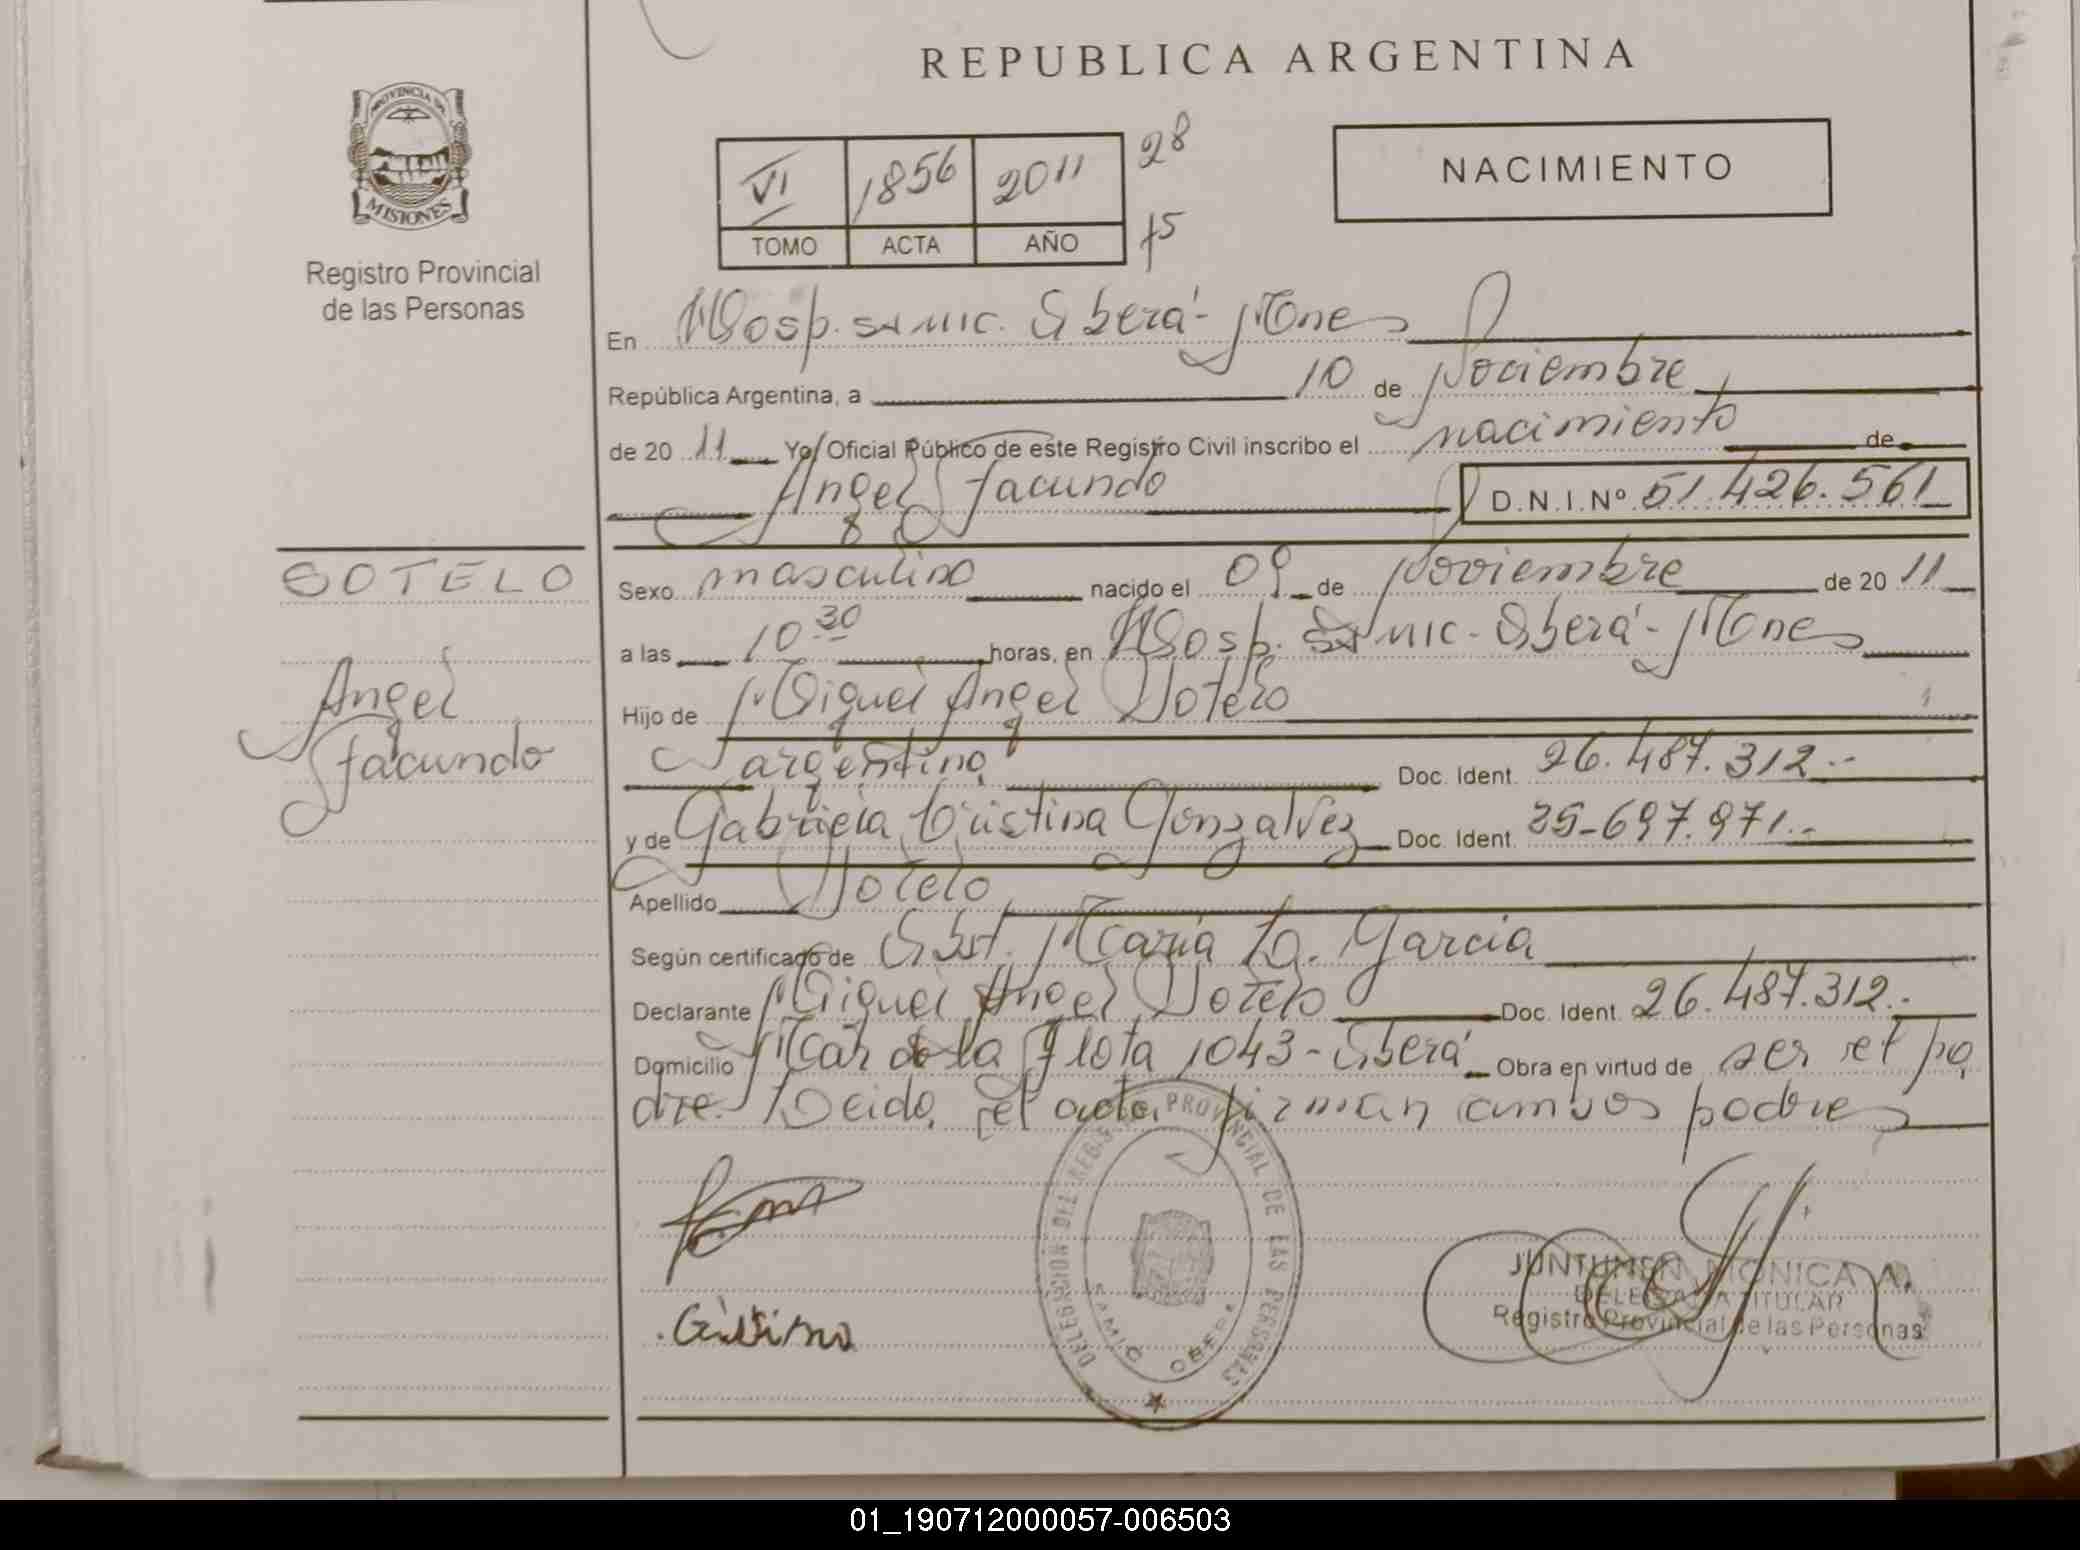 REPUBLICA ARGENTINA
PROVINCIA DE
MISIONES
Registro Provincial
de las Personas
VI 1856 2011
TOMO ACTA AÑO
28
15
NACIMIENTO
En Hosp. SAMIC. Oberá - Mnes
República Argentina, a 10 de Noviembre
de 20 11 Yo, Oficial Público de este Registro Civil inscribo el nacimiento de
Angel Facundo D.N.I.Nº 51.426.561
SOTELO
Angel
Facundo
Sexo masculino nacido el 09 de Noviembre de 20 11
a las 10 30 horas, en Hosp. SAMIC - Oberá - Mnes
Hijo de Miguel Angel Sotelo
argentino Doc. Ident. 26.487.312.-
y de Gabriela Cristina Gonzalvez Doc. Ident. 35-697.971.-
Apellido Sotelo
Según certificado de Obst. María D. Garcia
Declarante Miguel Angel Sotelo Doc. Ident. 26.487.312.-
Domicilio Mar de la Flota 1043 - Oberá Obra en virtud de ser el pa
dre. Leida el acta firman ambos padres
DELEGACION DEL REGISTRO PROVINCIAL DE LAS PERSONAS
SAMIC OBERA
Cristina
JUNTUNEN MONICA A.
DELEGADA TITULAR
Registro Provincial de las Personas
01_190712000057-006503